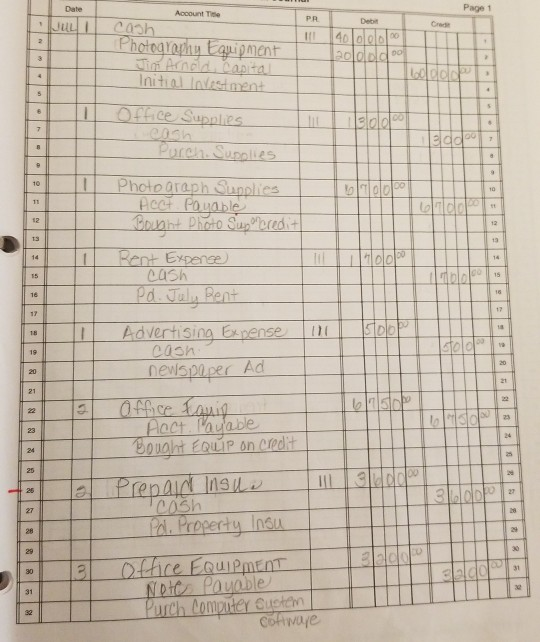 Page 1
Date Account Title P.R. Debit Credit
1 JUL 1 Cash 111 40 000 00 1
2 Photography Equipment 20 000 00 2
3 Jim Arnold, Capital 60 000 00 3
4 Initial Investment 4
5 5
6 1 Office Supplies 111 1 300 00 6
7 cash 1 300 00 7
8 Purch. Supplies 8
9 9
10 1 Photograph Supplies 6 700 00 10
11 Acct. Payable 6 700 00 11
12 Bought Photo Sup on credit 12
13 13
14 1 Rent Expense 111 1 700 00 14
15 cash 1 700 00 15
16 Pd. July Rent 16
17 17
18 1 Advertising Expense 111 500 00 18
19 cash 500 00 19
20 newspaper Ad 20
21 21
22 2 Office Equip 6 750 00 22
23 Acct. Payable 6 750 00 23
24 Bought EQUIP on credit 24
25 25
26 2 Prepaid Insu 111 3 600 00 26
27 cash 3 600 00 27
28 Pd. Property Insu 28
29 29
30 3 Office EQUIPMENT 3 200 00 30
31 Note Payable 3 200 00 31
32 Purch Computer System 32
Software